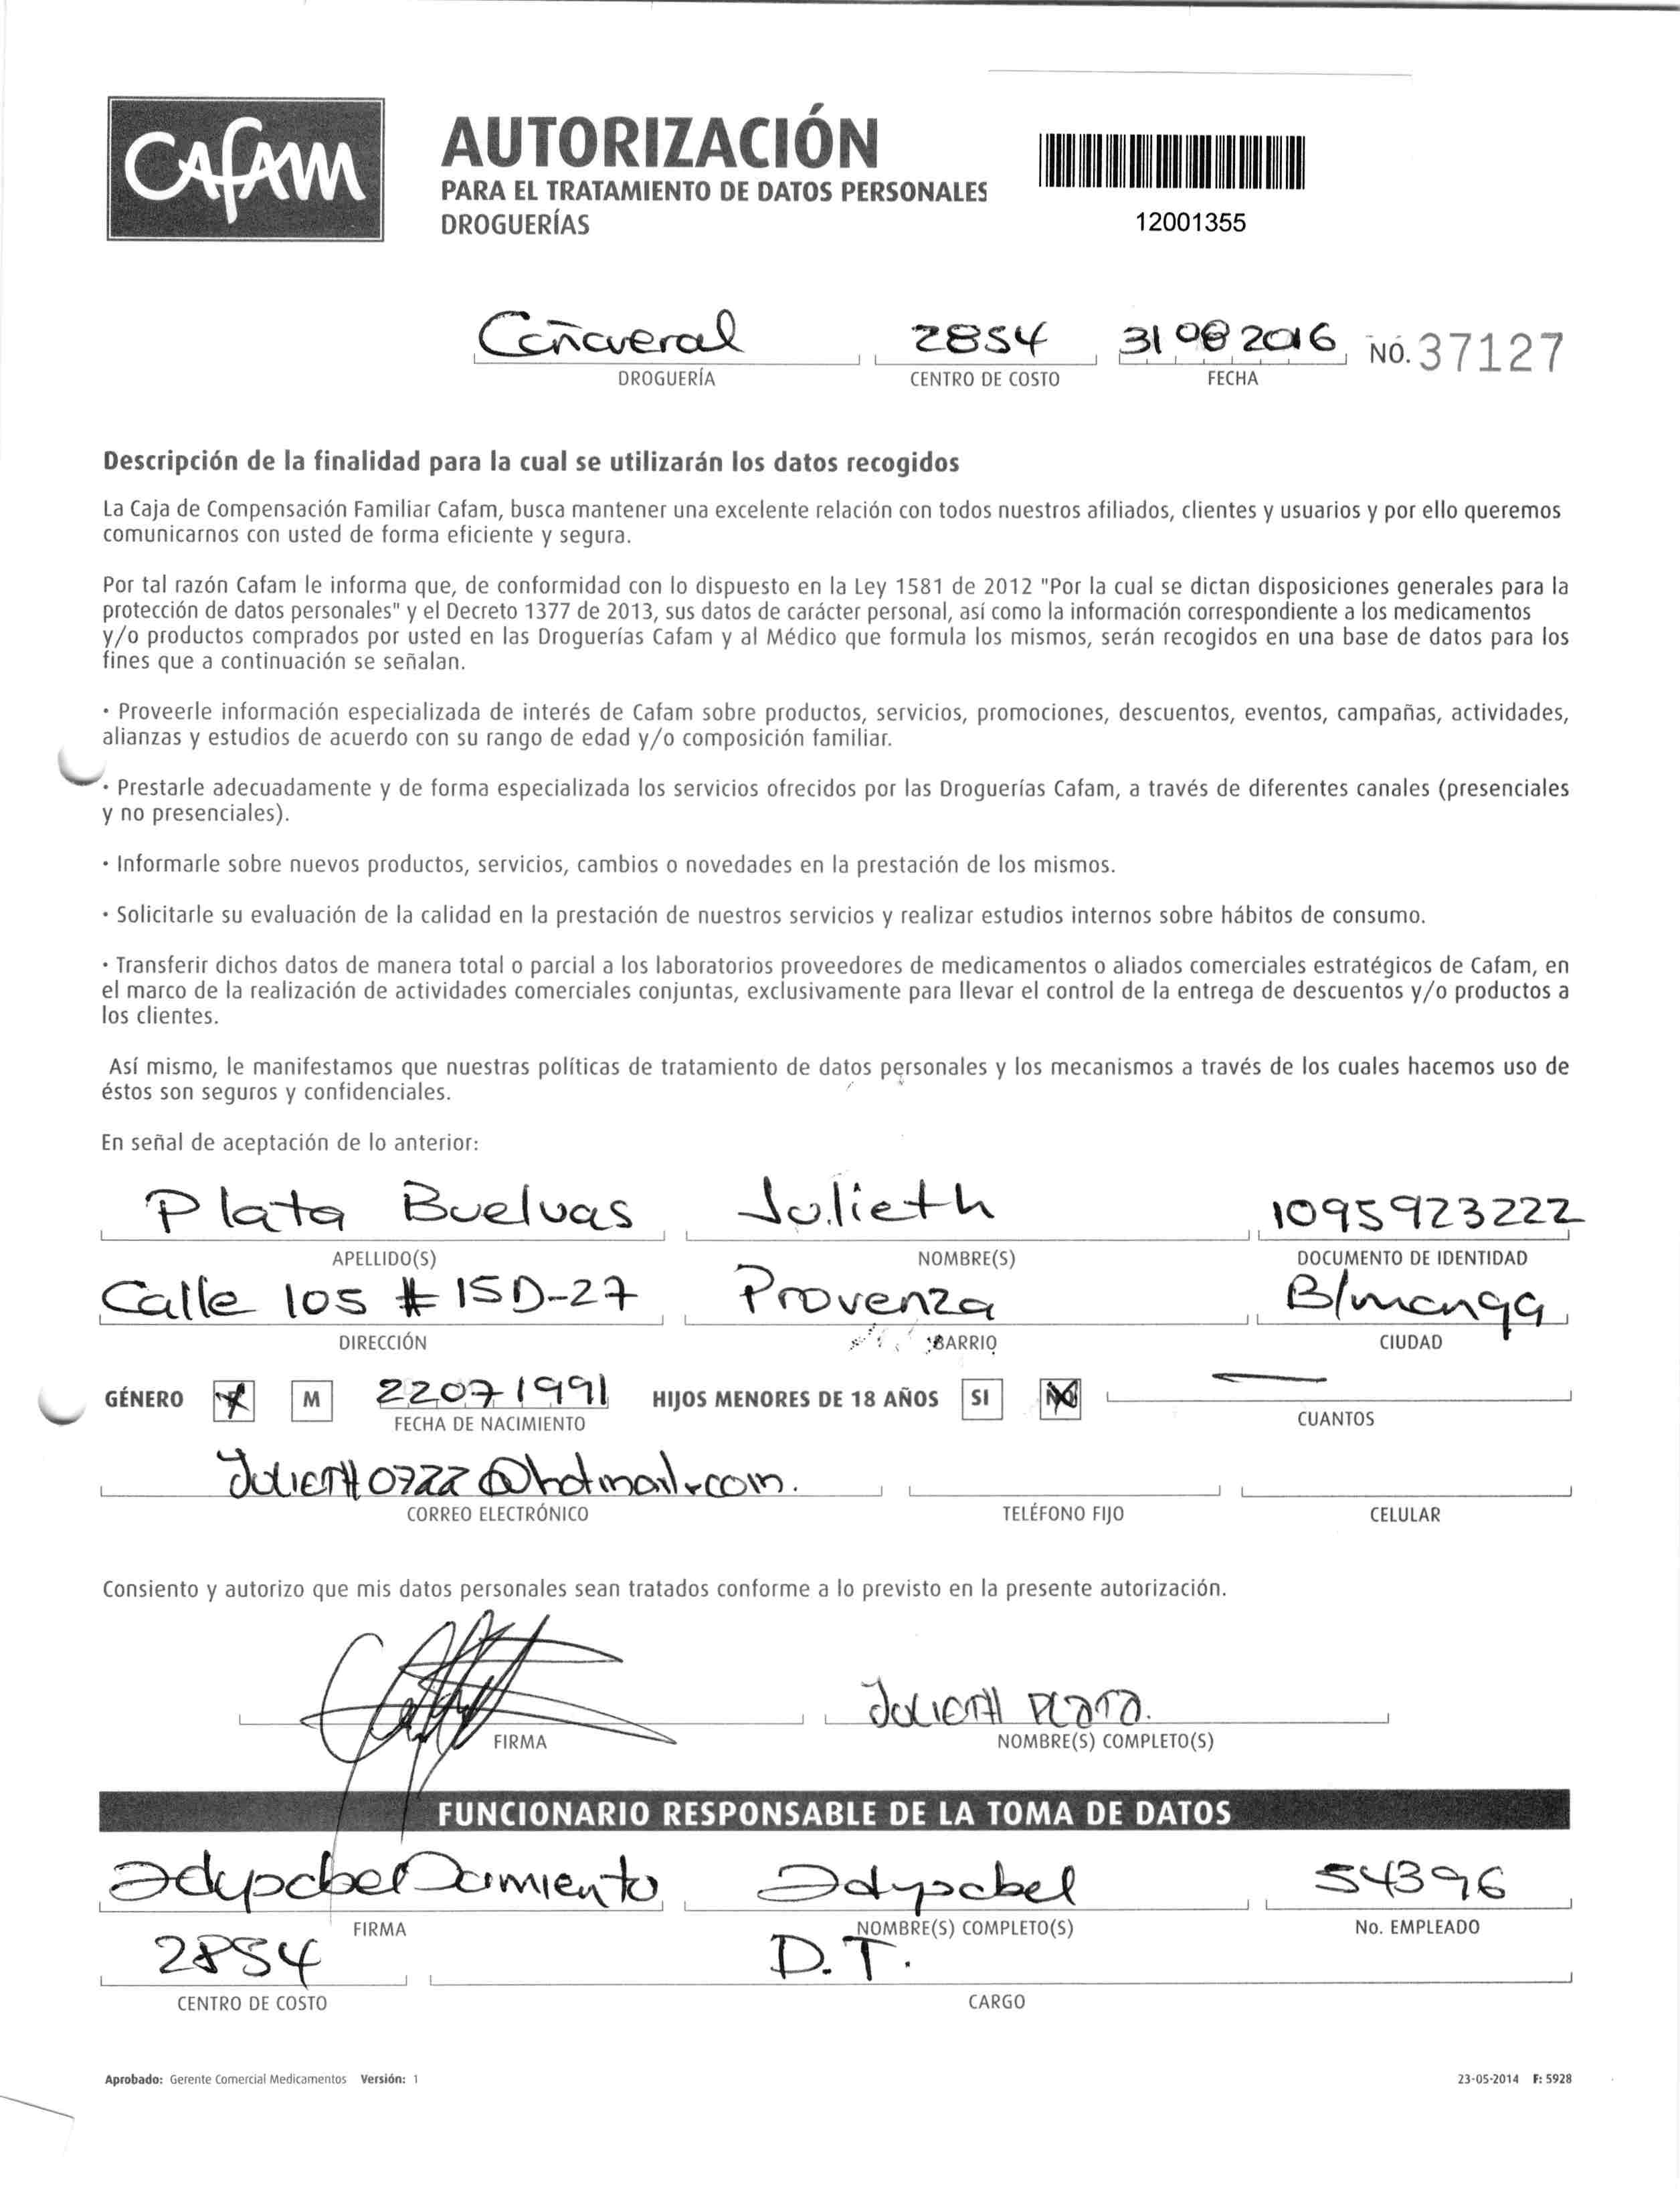 CAFAM
AUTORIZACIÓN
PARA EL TRATAMIENTO DE DATOS PERSONALES
DROGUERÍAS
12001355
Cañaveral 2854 31 08 2016 NÓ. 37127
DROGUERÍA CENTRO DE COSTO FECHA
Descripción de la finalidad para la cual se utilizarán los datos recogidos
La Caja de Compensación Familiar Cafam, busca mantener una excelente relación con todos nuestros afiliados, clientes y usuarios y por ello queremos
comunicarnos con usted de forma eficiente y segura.
Por tal razón Cafam le informa que, de conformidad con lo dispuesto en la Ley 1581 de 2012 "Por la cual se dictan disposiciones generales para la
protección de datos personales" y el Decreto 1377 de 2013, sus datos de carácter personal, así como la información correspondiente a los medicamentos
y/o productos comprados por usted en las Droguerías Cafam y al Médico que formula los mismos, serán recogidos en una base de datos para los
fines que a continuación se señalan.
· Proveerle información especializada de interés de Cafam sobre productos, servicios, promociones, descuentos, eventos, campañas, actividades,
alianzas y estudios de acuerdo con su rango de edad y/o composición familiar.
· Prestarle adecuadamente y de forma especializada los servicios ofrecidos por las Droguerías Cafam, a través de diferentes canales (presenciales
y no presenciales).
· Informarle sobre nuevos productos, servicios, cambios o novedades en la prestación de los mismos.
· Solicitarle su evaluación de la calidad en la prestación de nuestros servicios y realizar estudios internos sobre hábitos de consumo.
· Transferir dichos datos de manera total o parcial a los laboratorios proveedores de medicamentos o aliados comerciales estratégicos de Cafam, en
el marco de la realización de actividades comerciales conjuntas, exclusivamente para llevar el control de la entrega de descuentos y/o productos a
los clientes.
Así mismo, le manifestamos que nuestras políticas de tratamiento de datos personales y los mecanismos a través de los cuales hacemos uso de
éstos son seguros y confidenciales.
En señal de aceptación de lo anterior:
Plata Buelvas Julieth 1095923222
APELLIDO(S) NOMBRE(S) DOCUMENTO DE IDENTIDAD
Calle 105 # 15D-27 Provenza B/manga
DIRECCIÓN BARRIO CIUDAD
GÉNERO F M 22071991 HIJOS MENORES DE 18 AÑOS SI NO —
FECHA DE NACIMIENTO CUANTOS
Julieth0722@hotmail.com.
CORREO ELECTRÓNICO TELÉFONO FIJO CELULAR
Consiento y autorizo que mis datos personales sean tratados conforme a lo previsto en la presente autorización.
Julieth Plata.
FIRMA NOMBRE(S) COMPLETO(S)
FUNCIONARIO RESPONSABLE DE LA TOMA DE DATOS
54396
FIRMA NOMBRE(S) COMPLETO(S) No. EMPLEADO
2854 D.T.
CENTRO DE COSTO CARGO
Aprobado: Gerente Comercial Medicamentos Versión: 1 23-05-2014 F: 5928